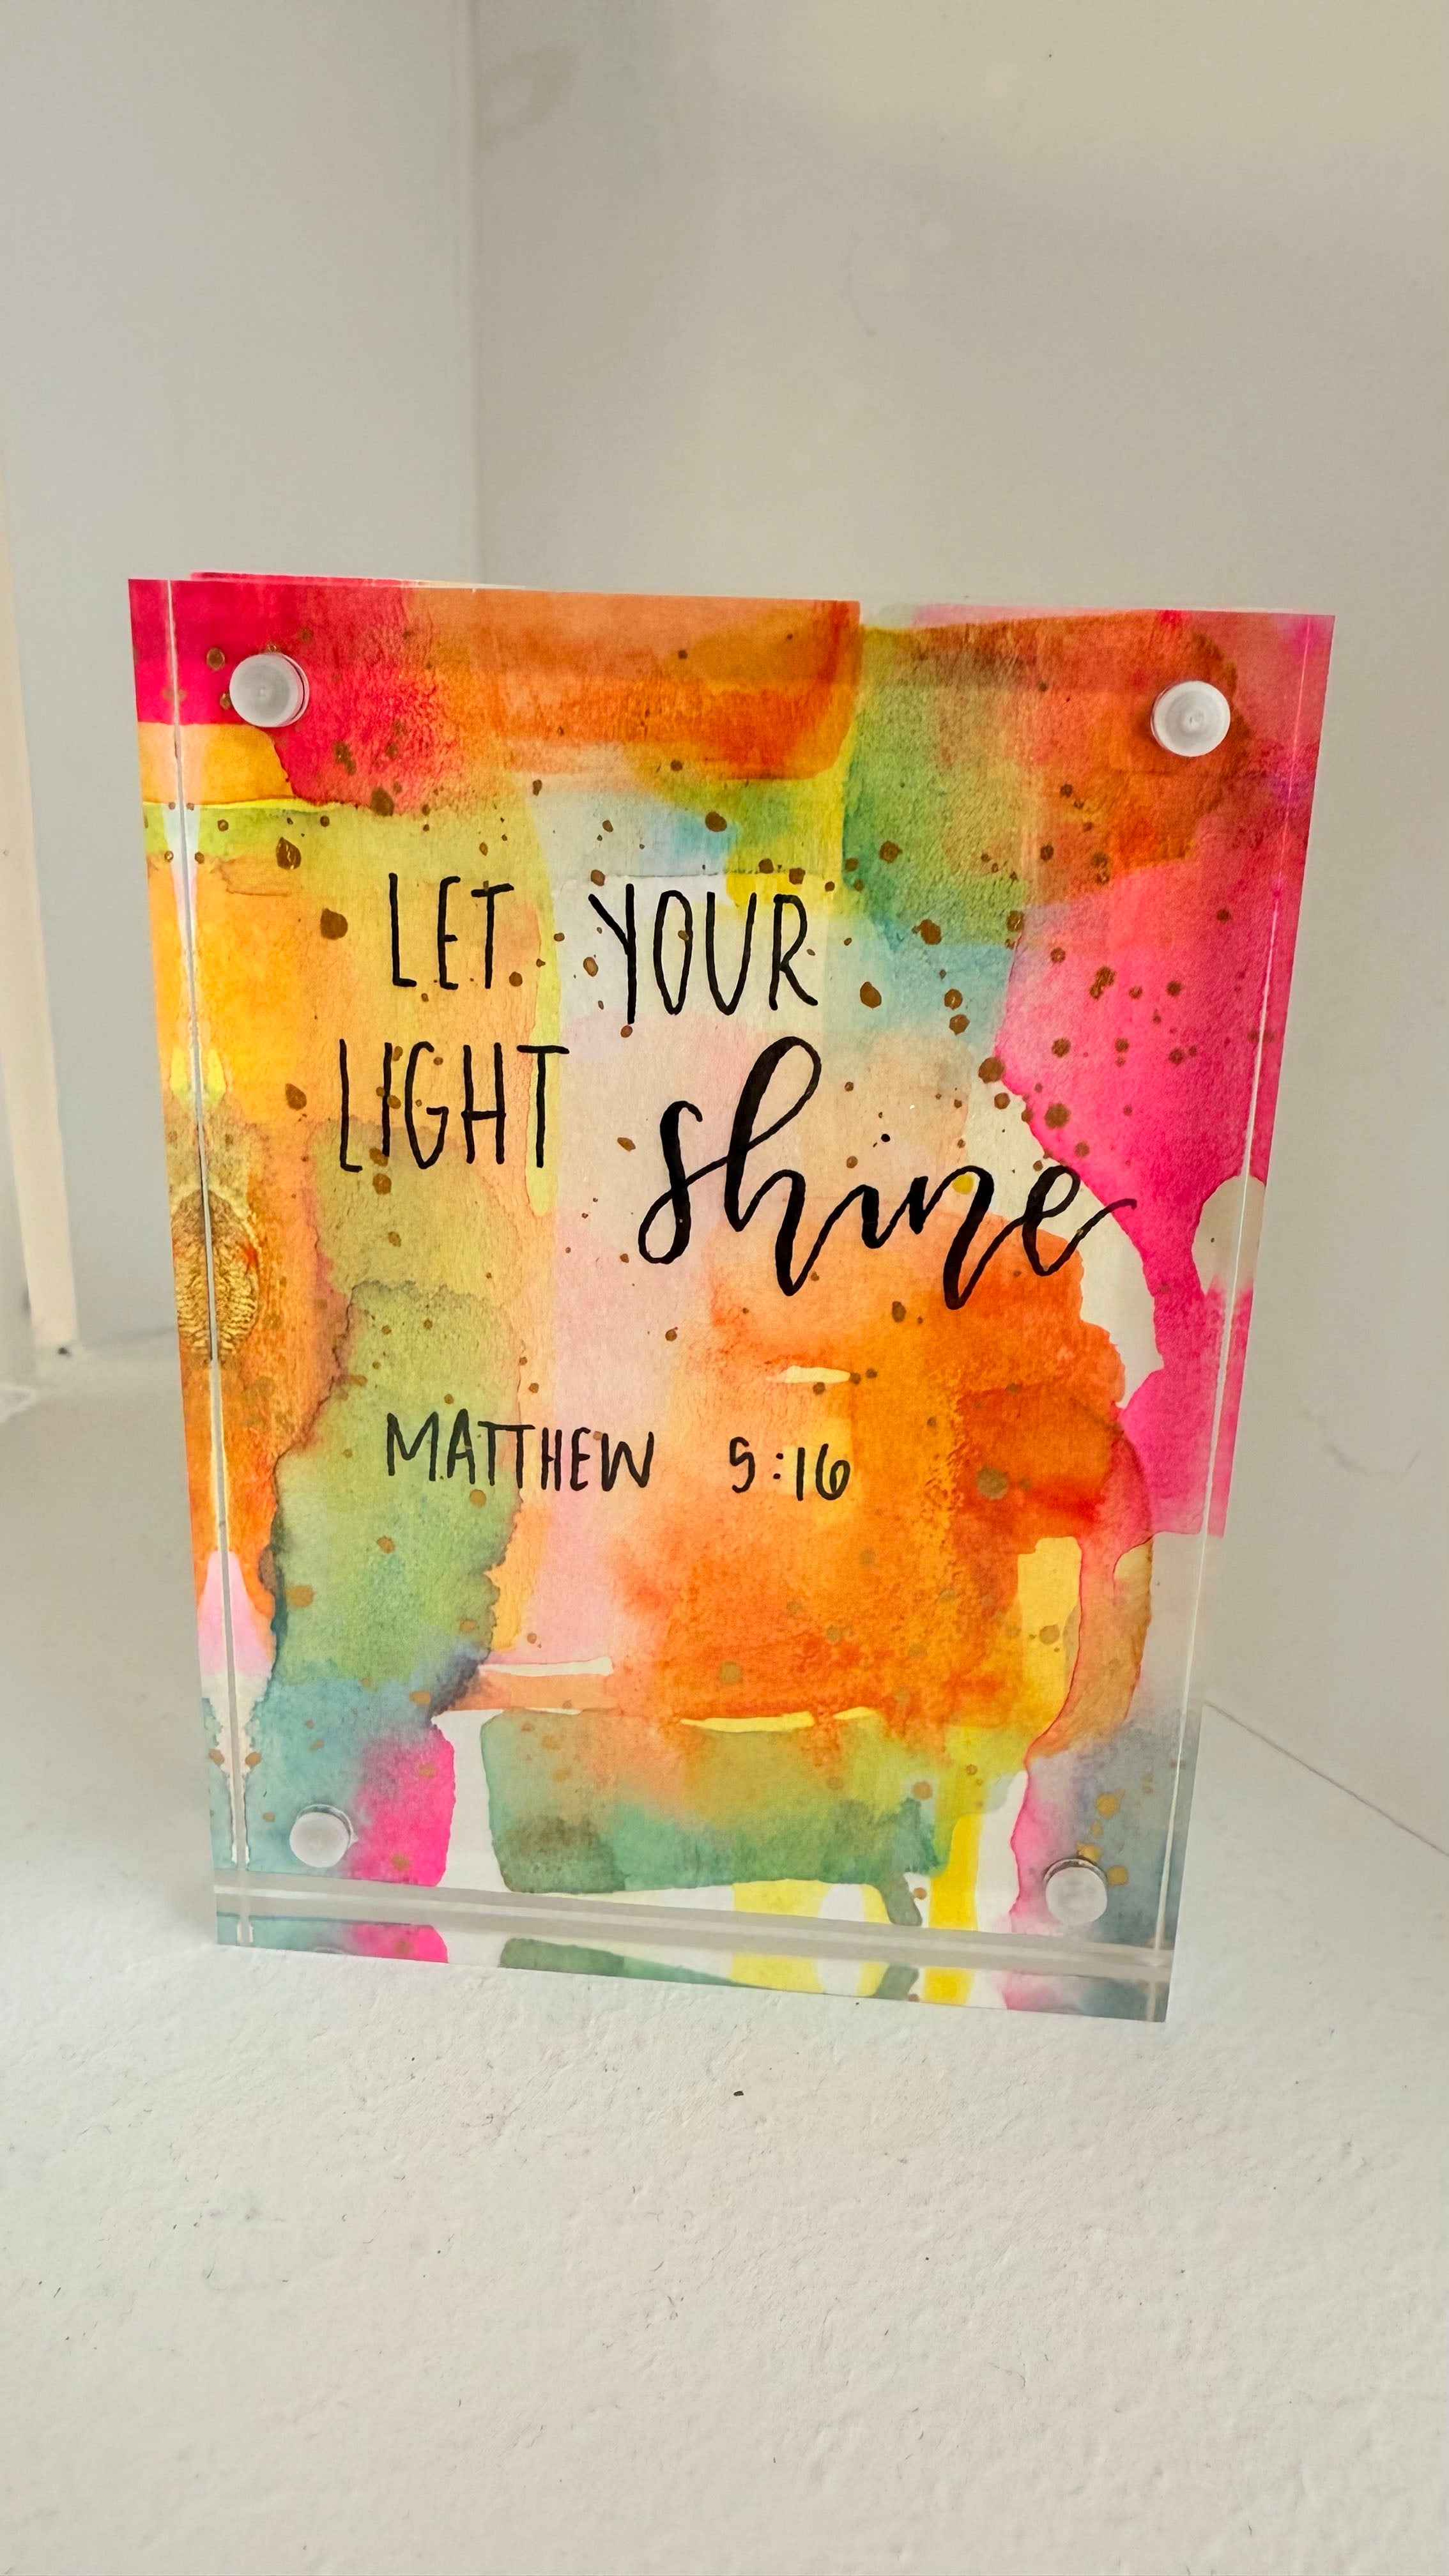 LET YOUR
LIGHT shine
MATTHEW 5:16